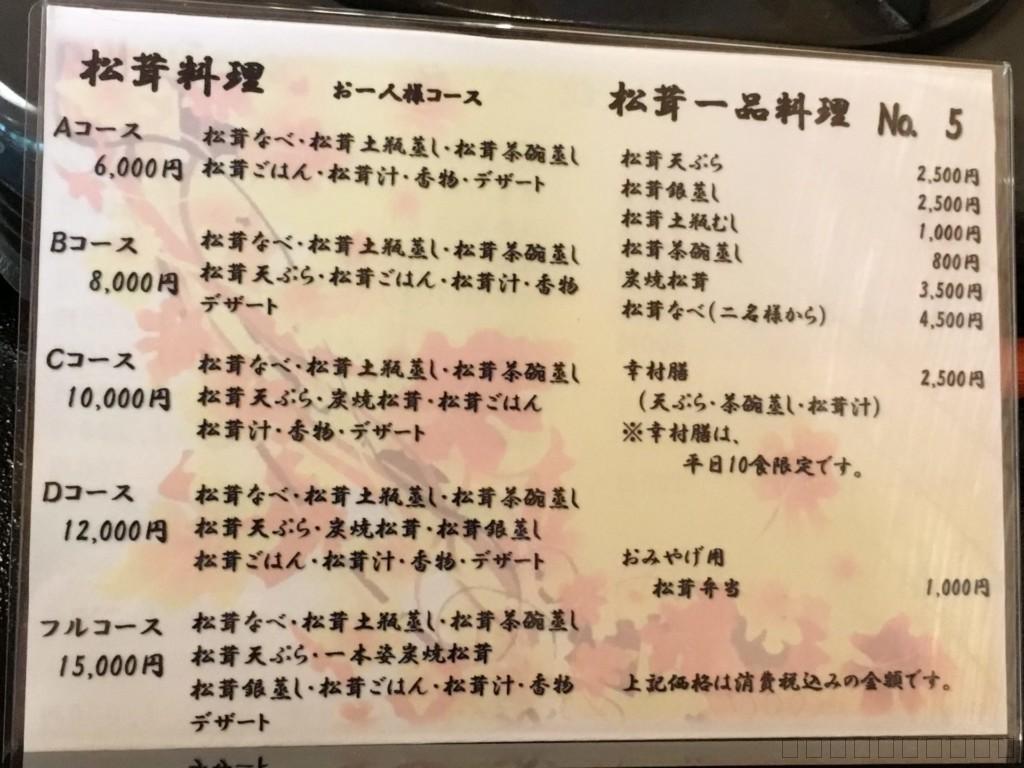 松茸料理 お一人様コース
Aコース
6,000円
松茸なべ・松茸土瓶蒸し・松茸茶碗蒸し
松茸ごはん・松茸汁・香物・デザート
Bコース
8,000円
松茸なべ・松茸土瓶蒸し・松茸茶碗蒸し
松茸天ぷら・松茸ごはん・松茸汁・香物
デザート
Cコース
10,000円
松茸なべ・松茸土瓶蒸し・松茸茶碗蒸し
松茸天ぷら・炭焼松茸・松茸ごはん
松茸汁・香物・デザート
Dコース
12,000円
松茸なべ・松茸土瓶蒸し・松茸茶碗蒸し
松茸天ぷら・炭焼松茸・松茸銀蒸し
松茸ごはん・松茸汁・香物・デザート
フルコース
15,000円
松茸なべ・松茸土瓶蒸し・松茸茶碗蒸し
松茸天ぷら・一本姿炭焼松茸
松茸銀蒸し・松茸ごはん・松茸汁・香物
デザート
松茸一品料理 No. 5
松茸天ぷら 2,500円
松茸銀蒸し 2,500円
松茸土瓶むし 1,000円
松茸茶碗蒸し 800円
炭焼松茸 3,500円
松茸なべ(二名様から) 4,500円
幸村膳 2,500円
(天ぷら・茶碗蒸し・松茸汁)
※幸村膳は、
平日10食限定です。
おみやげ用
松茸弁当 1,000円
上記価格は消費税込みの金額です。